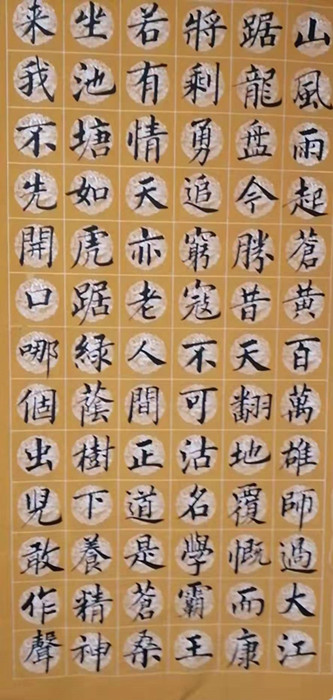 山風雨起蒼黃百萬雄師過大江
踞龍盘今勝昔天翻地覆慨而康
將剩勇追窮寇不可沽名學霸王
若有情天亦老人間正道是蒼桑
坐池塘如虎踞綠蔭樹下養精神
来我不先開口哪個虫兒敢作聲